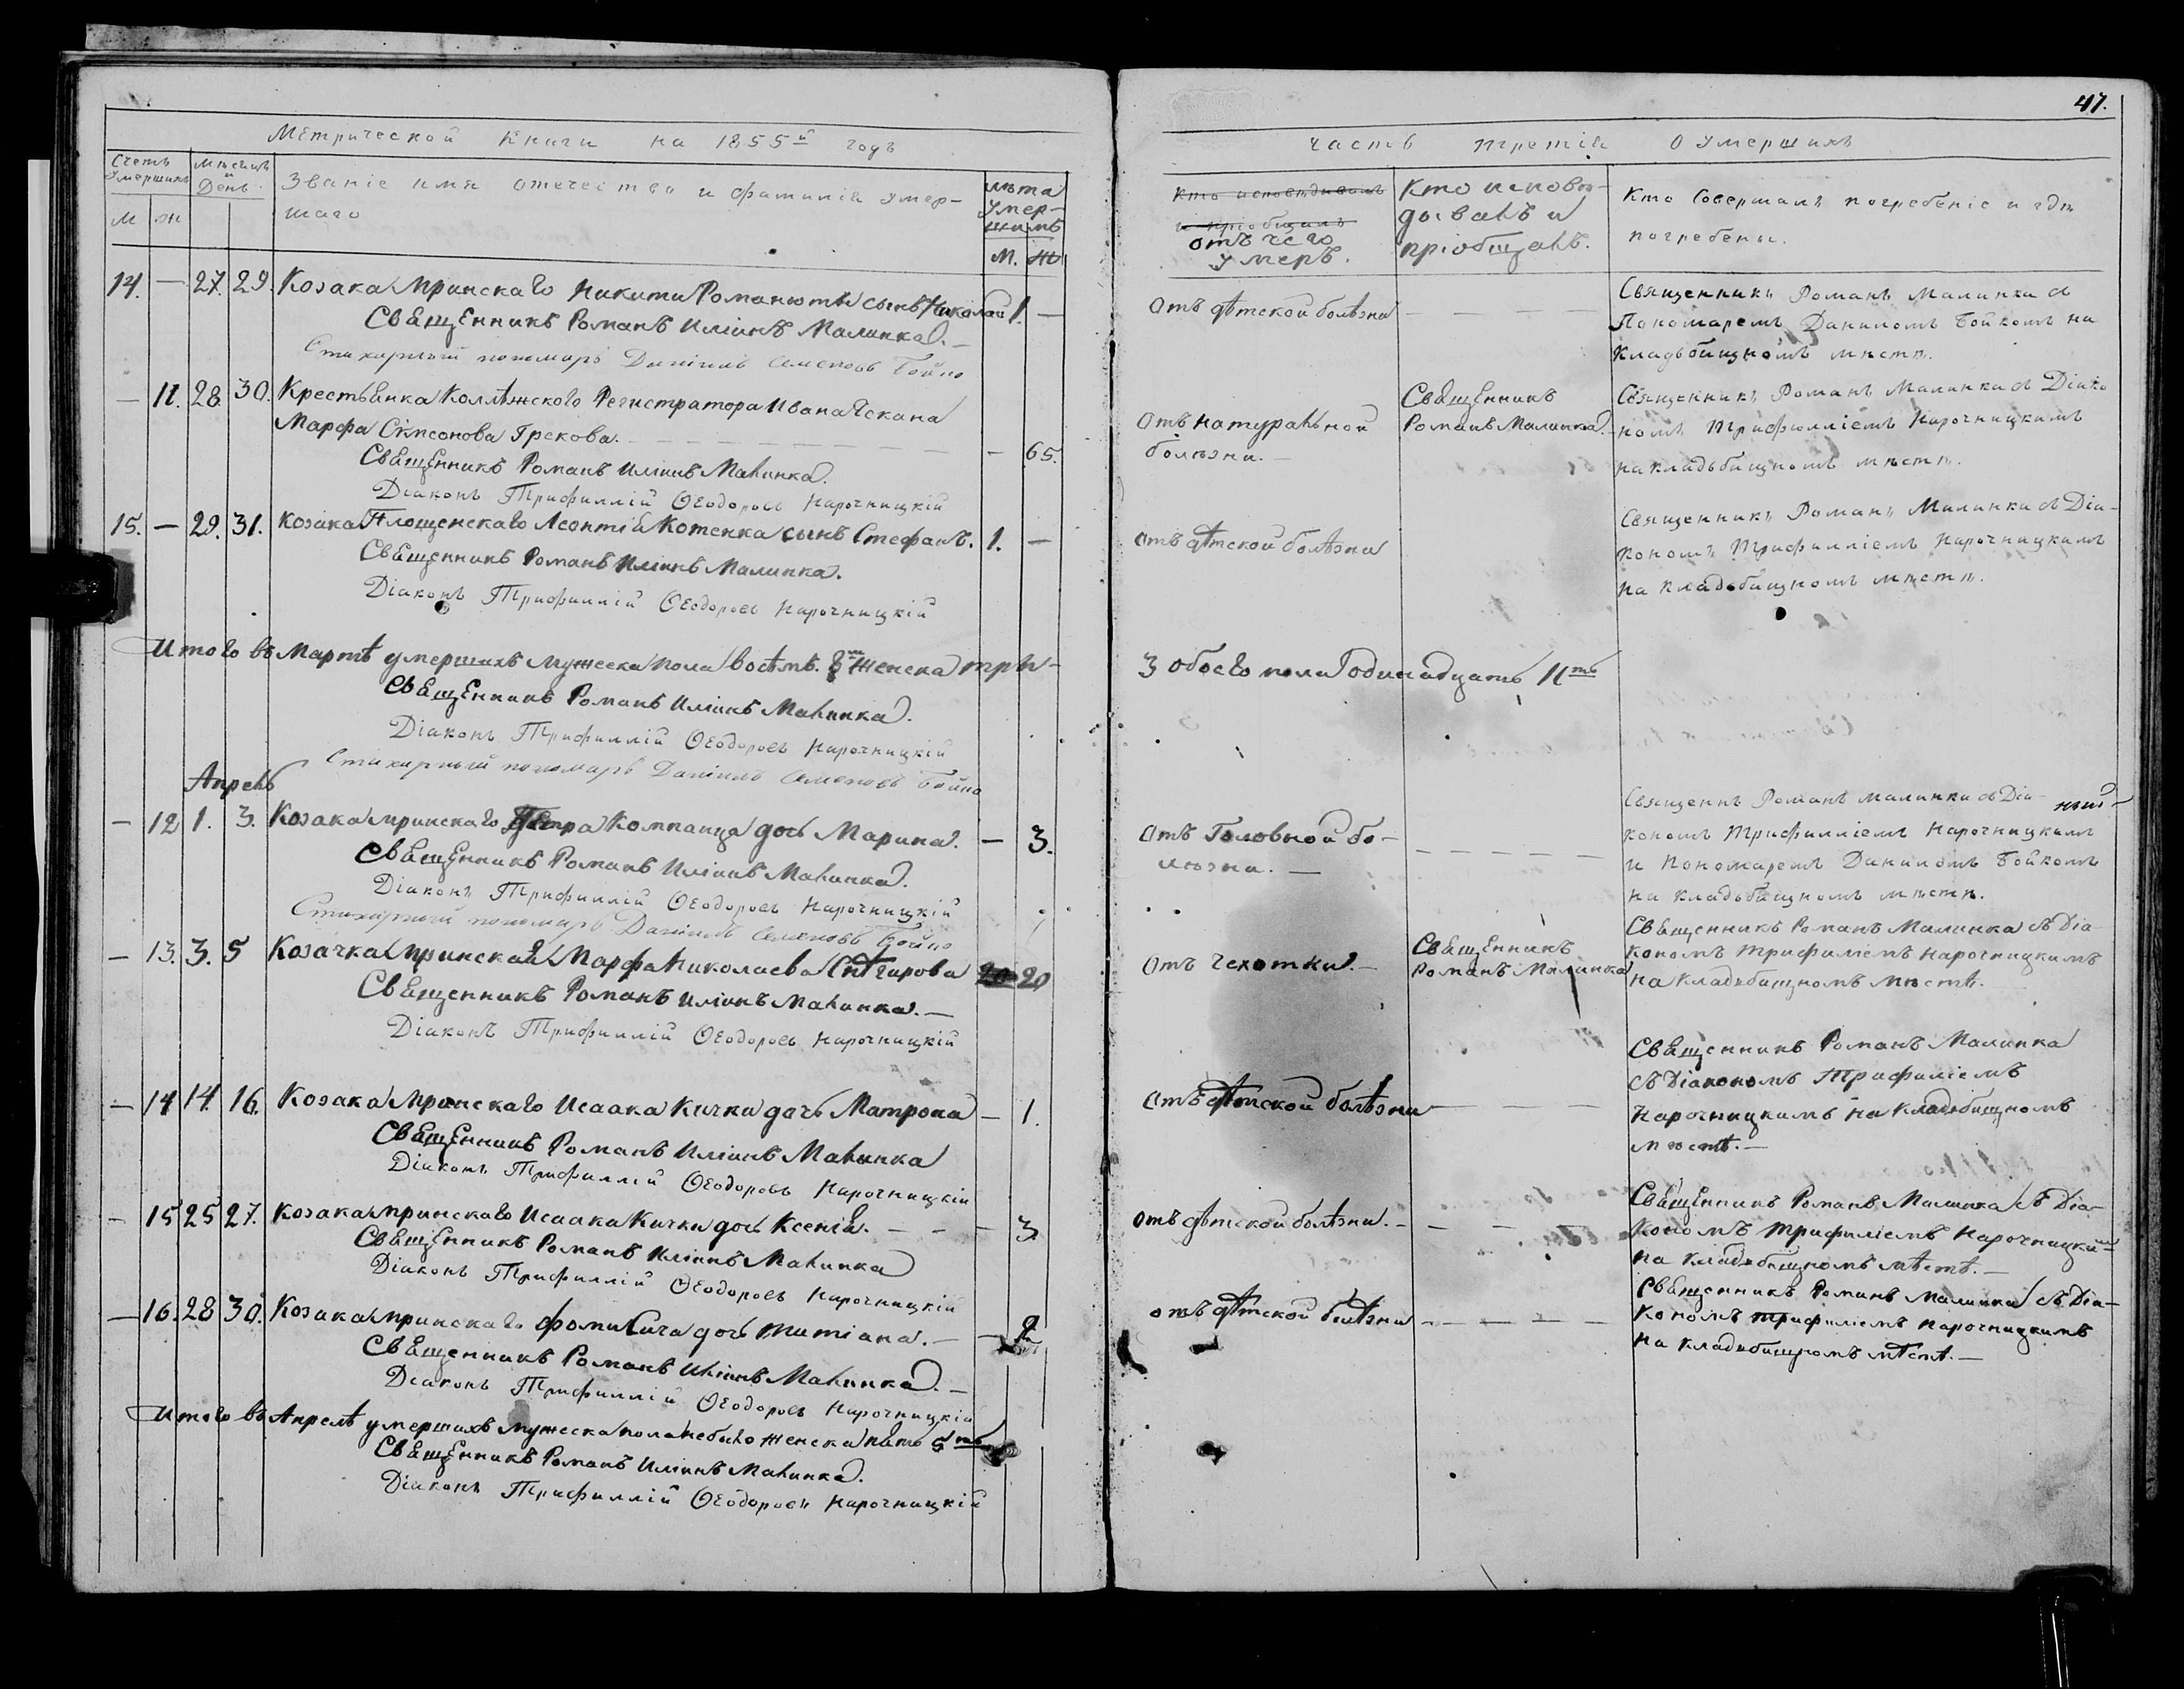 Метрической Книги на 1855й годъ
Счетъ Умершихъ
М ж
Мѣсяцъ и День
Званіе имя отечество и фамилія умер-
шаго
лѣта Умер-
шимъ
М. Ж
14. — 27. 29. Козака Мринскаго Никиты Романюты сынъ Николай 1. —
Священникъ Романъ Иліинъ Малинка. —
Стихарный пономарь Даніилъ Семеновъ Бойко
— 11. 28. 30. Крестьянка Коллѣжского Регистратора Ивана
Марфа Грекова. — — 65.
Священникъ Романъ Иліинъ Малинка.
Діаконъ Трифиллій Ѳеодоровъ Нарочницкій
15. — 29. 31. Козака Площенскаго Леонтія Котенка сынъ Стефанъ. 1. —
Священникъ Романъ Иліинъ Малинка.
Діаконъ Трифиллій Ѳеодоровъ Нарочницкій
Итого въ Мартѣ умершихъ мужеска пола восѣмъ. 8мъ Женска три —
Священникъ Романъ Иліинъ Малинка.
Діаконъ Трифиллій Ѳеодоровъ Нарочницкій
Стихарный пономарь Даніилъ Семеновъ Бойко
Апрель
— 12 1. 3. Козака мринскаго Петра Компанца дочь Марина. — 3.
Священникъ Романъ Иліинъ Малинка.
Діаконъ Трифиллій Ѳеодоровъ Нарочницкій
Стихарный пономарь Даніилъ Семеновъ Бойко
— 13. 3. 5 Козачка мринская Марфа Николаева Снѣгирова 20 20
Священникъ Романъ Иліинъ Малинка. —
Діаконъ Трифиллій Ѳеодоровъ Нарочницкій
— 14 14. 16. Козака Мринскаго Исаака Кички дочь Матрона — 1.
Священникъ Романъ Иліинъ Малинка
Діаконъ Трифиллій Ѳеодоровъ Нарочницкій
— 15 25 27. Козака мринскаго Исаака Кички дочь Ксенія. — — — 3.
Священникъ Романъ Иліинъ Малинка
Діаконъ Трифиллій Ѳеодоровъ Нарочницкій
— 16. 28 30. Козака мринскаго Фомы Сича дочь Титіана. — — 2
Священникъ Романъ Иліинъ Малинка. —
Діаконъ Трифиллій Ѳеодоровъ Нарочницкій
Итого въ Апрелѣ умершихъ мужеска пола небыло женска пять 5ть
Священникъ Романъ Иліинъ Малинка.
Діаконъ Трифиллій Ѳеодоровъ Нарочницкій
47.
часть третія О Умершихъ
Кто исповѣдывалъ
и пріобщалъ
отъ чего
умеръ.
Кто исповѣ-
дывалъ и
пріобщалъ.
Кто Совершалъ погребеніе и гдѣ
погребены.
Отъ дѣтской болѣзни — — — —
Священникъ Романъ Малинка съ
Пономаремъ Даниломъ Бойкомъ на
кладьбищномъ мѣстѣ.
Отъ натуральной
болѣзни. —
Священникъ
Романъ Малинка.
Священникъ Романъ Малинка съ Діако
номъ Трифилліемъ Нарочницкимъ
на кладьбищномъ мѣстѣ.
Отъ дѣтской болѣзни
Священникъ Романъ Малинка съ Діа-
кономъ Трифилліемъ Нарочницкимъ
на кладьбищномъ мѣстѣ.
3 обоего пола одинадцать 11ть
Отъ Головной бо-
лѣзни. — — — — — —
Священнъ Романъ Малинка съ Діа-
кономъ Трифилліемъ Нарочницкимъ
и Пономаремъ Даниломъ Бойкомъ
на кладьбищномъ мѣстѣ.
Отъ чехотки. —
Священникъ
Романъ Малинка
Священникъ Романъ Малинка съ Діа-
кономъ Трифиліемъ Нарочницкимъ
на кладьбищномъ мѣстѣ.
Отъ дѣтской болѣзни — — —
Священникъ Романъ Малинка
съ Діакономъ Трифиліемъ
Нарочницкимъ на кладьбищномъ
мѣстѣ. —
Отъ дѣтской болѣзни. — — — —
Священникъ Романъ Малинка съ Діа-
кономъ Трифиліемъ Нарочницкимъ
на кладьбищномъ мѣстѣ. —
отъ дѣтской болѣзни — — — — —
Священникъ Романъ Малинка съ Діа-
кономъ Трифиліемъ Нарочницкимъ
на кладьбищномъ мѣстѣ. —